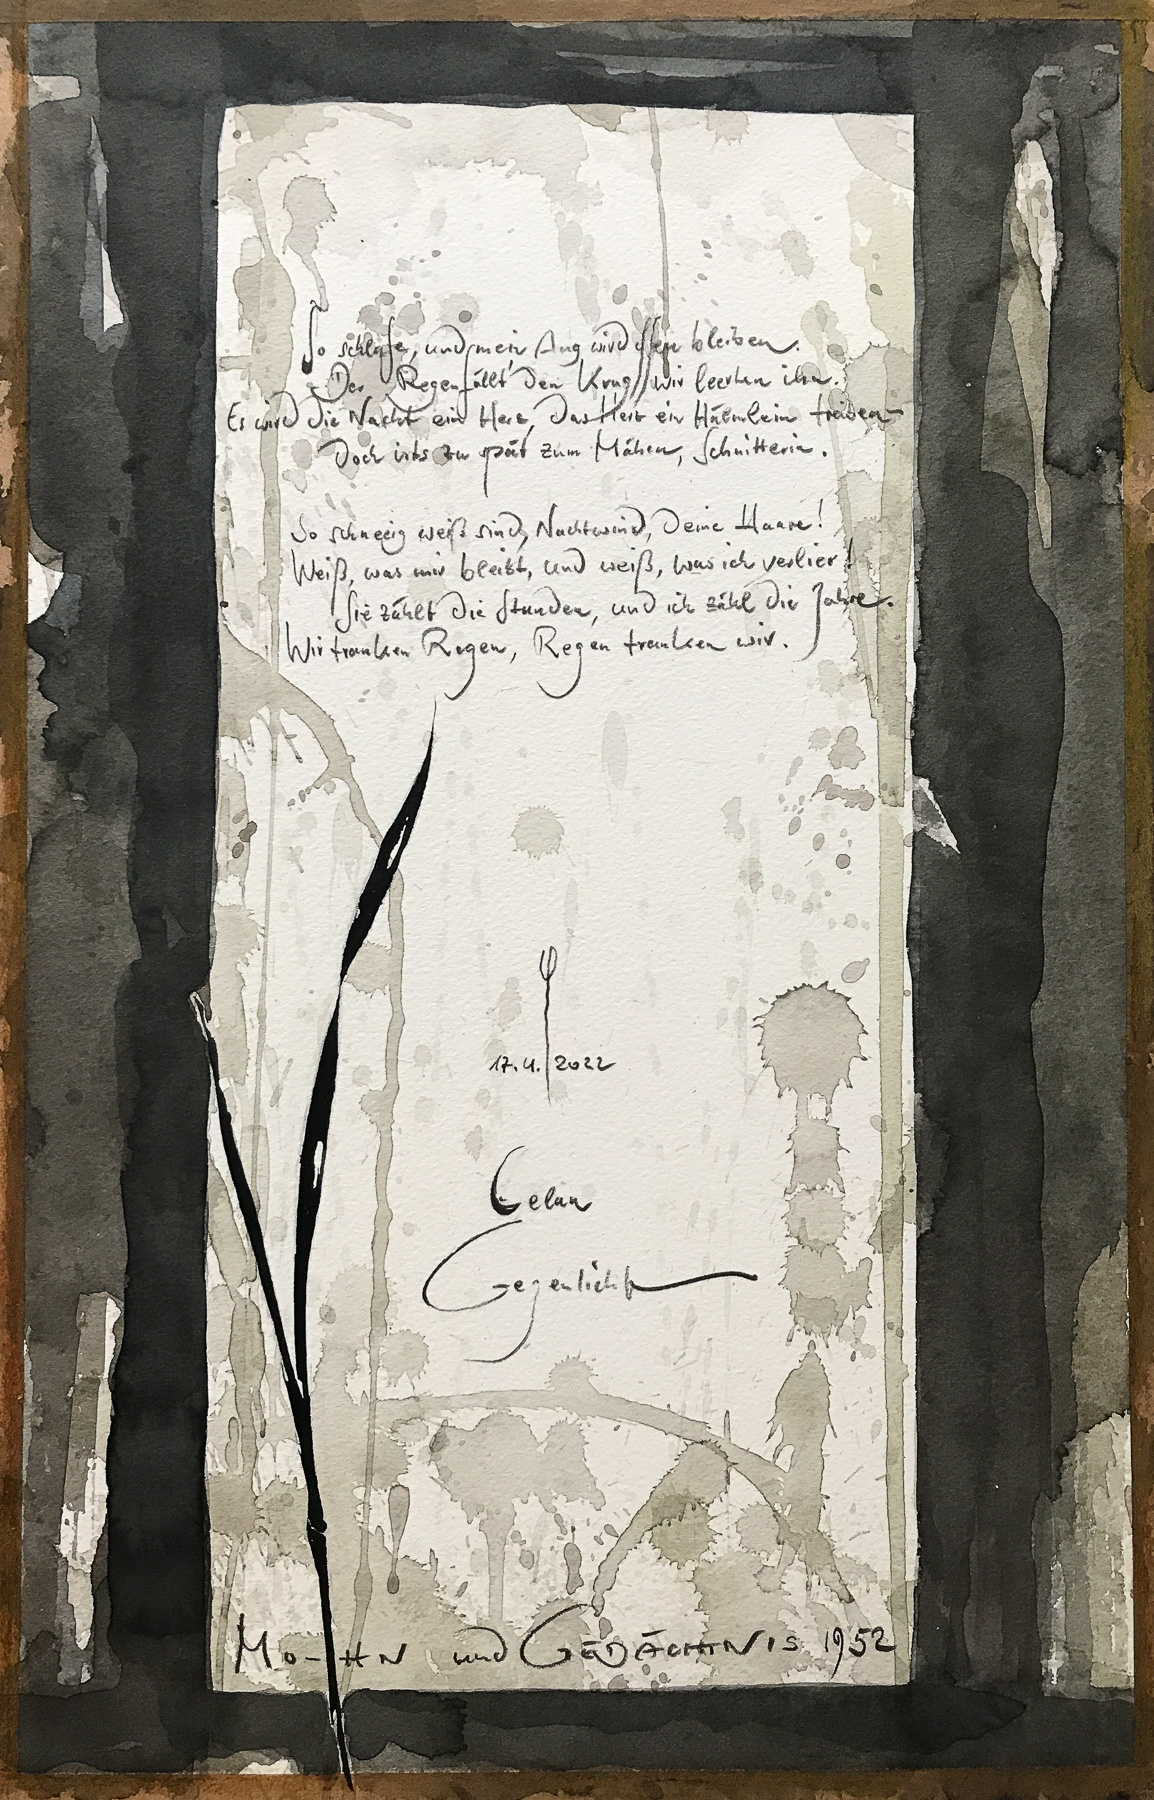 So schlafe, und mein Aug wird offen bleiben.
Der Regen füllt' den Krug, wir leerten ihn.
Es wird die Nacht ein Herz, das Herz ein Hälmlein treiben –
Doch ists zu spät zum Mähen, Schnitterin.
So schneeig weiß sind, Nachtwind, deine Haare!
Weiß, was mir bleibt, und weiß, was ich verlier!
Sie zählt die Stunden, und ich zähl die Jahre.
Wir tranken Regen, Regen tranken wir.
17.4.2022
Celan
Gegenlicht
MO-HN und GEDÄCHTNIS 1952